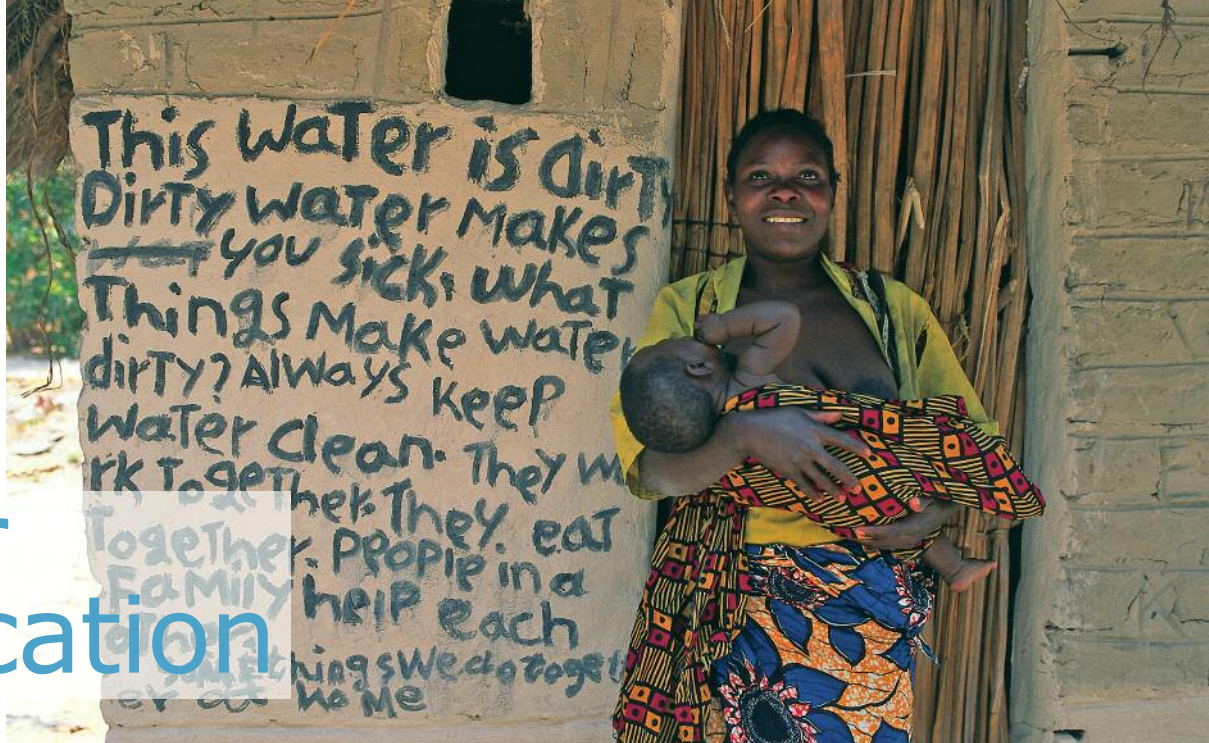 This Water is dirty
Dirty water makes
you sick, what
Things Make water
dirty? Always keep
water clean. They w
rk Together. They. eat
Together. People in a
Family help each
things we do toget
er at home
cation